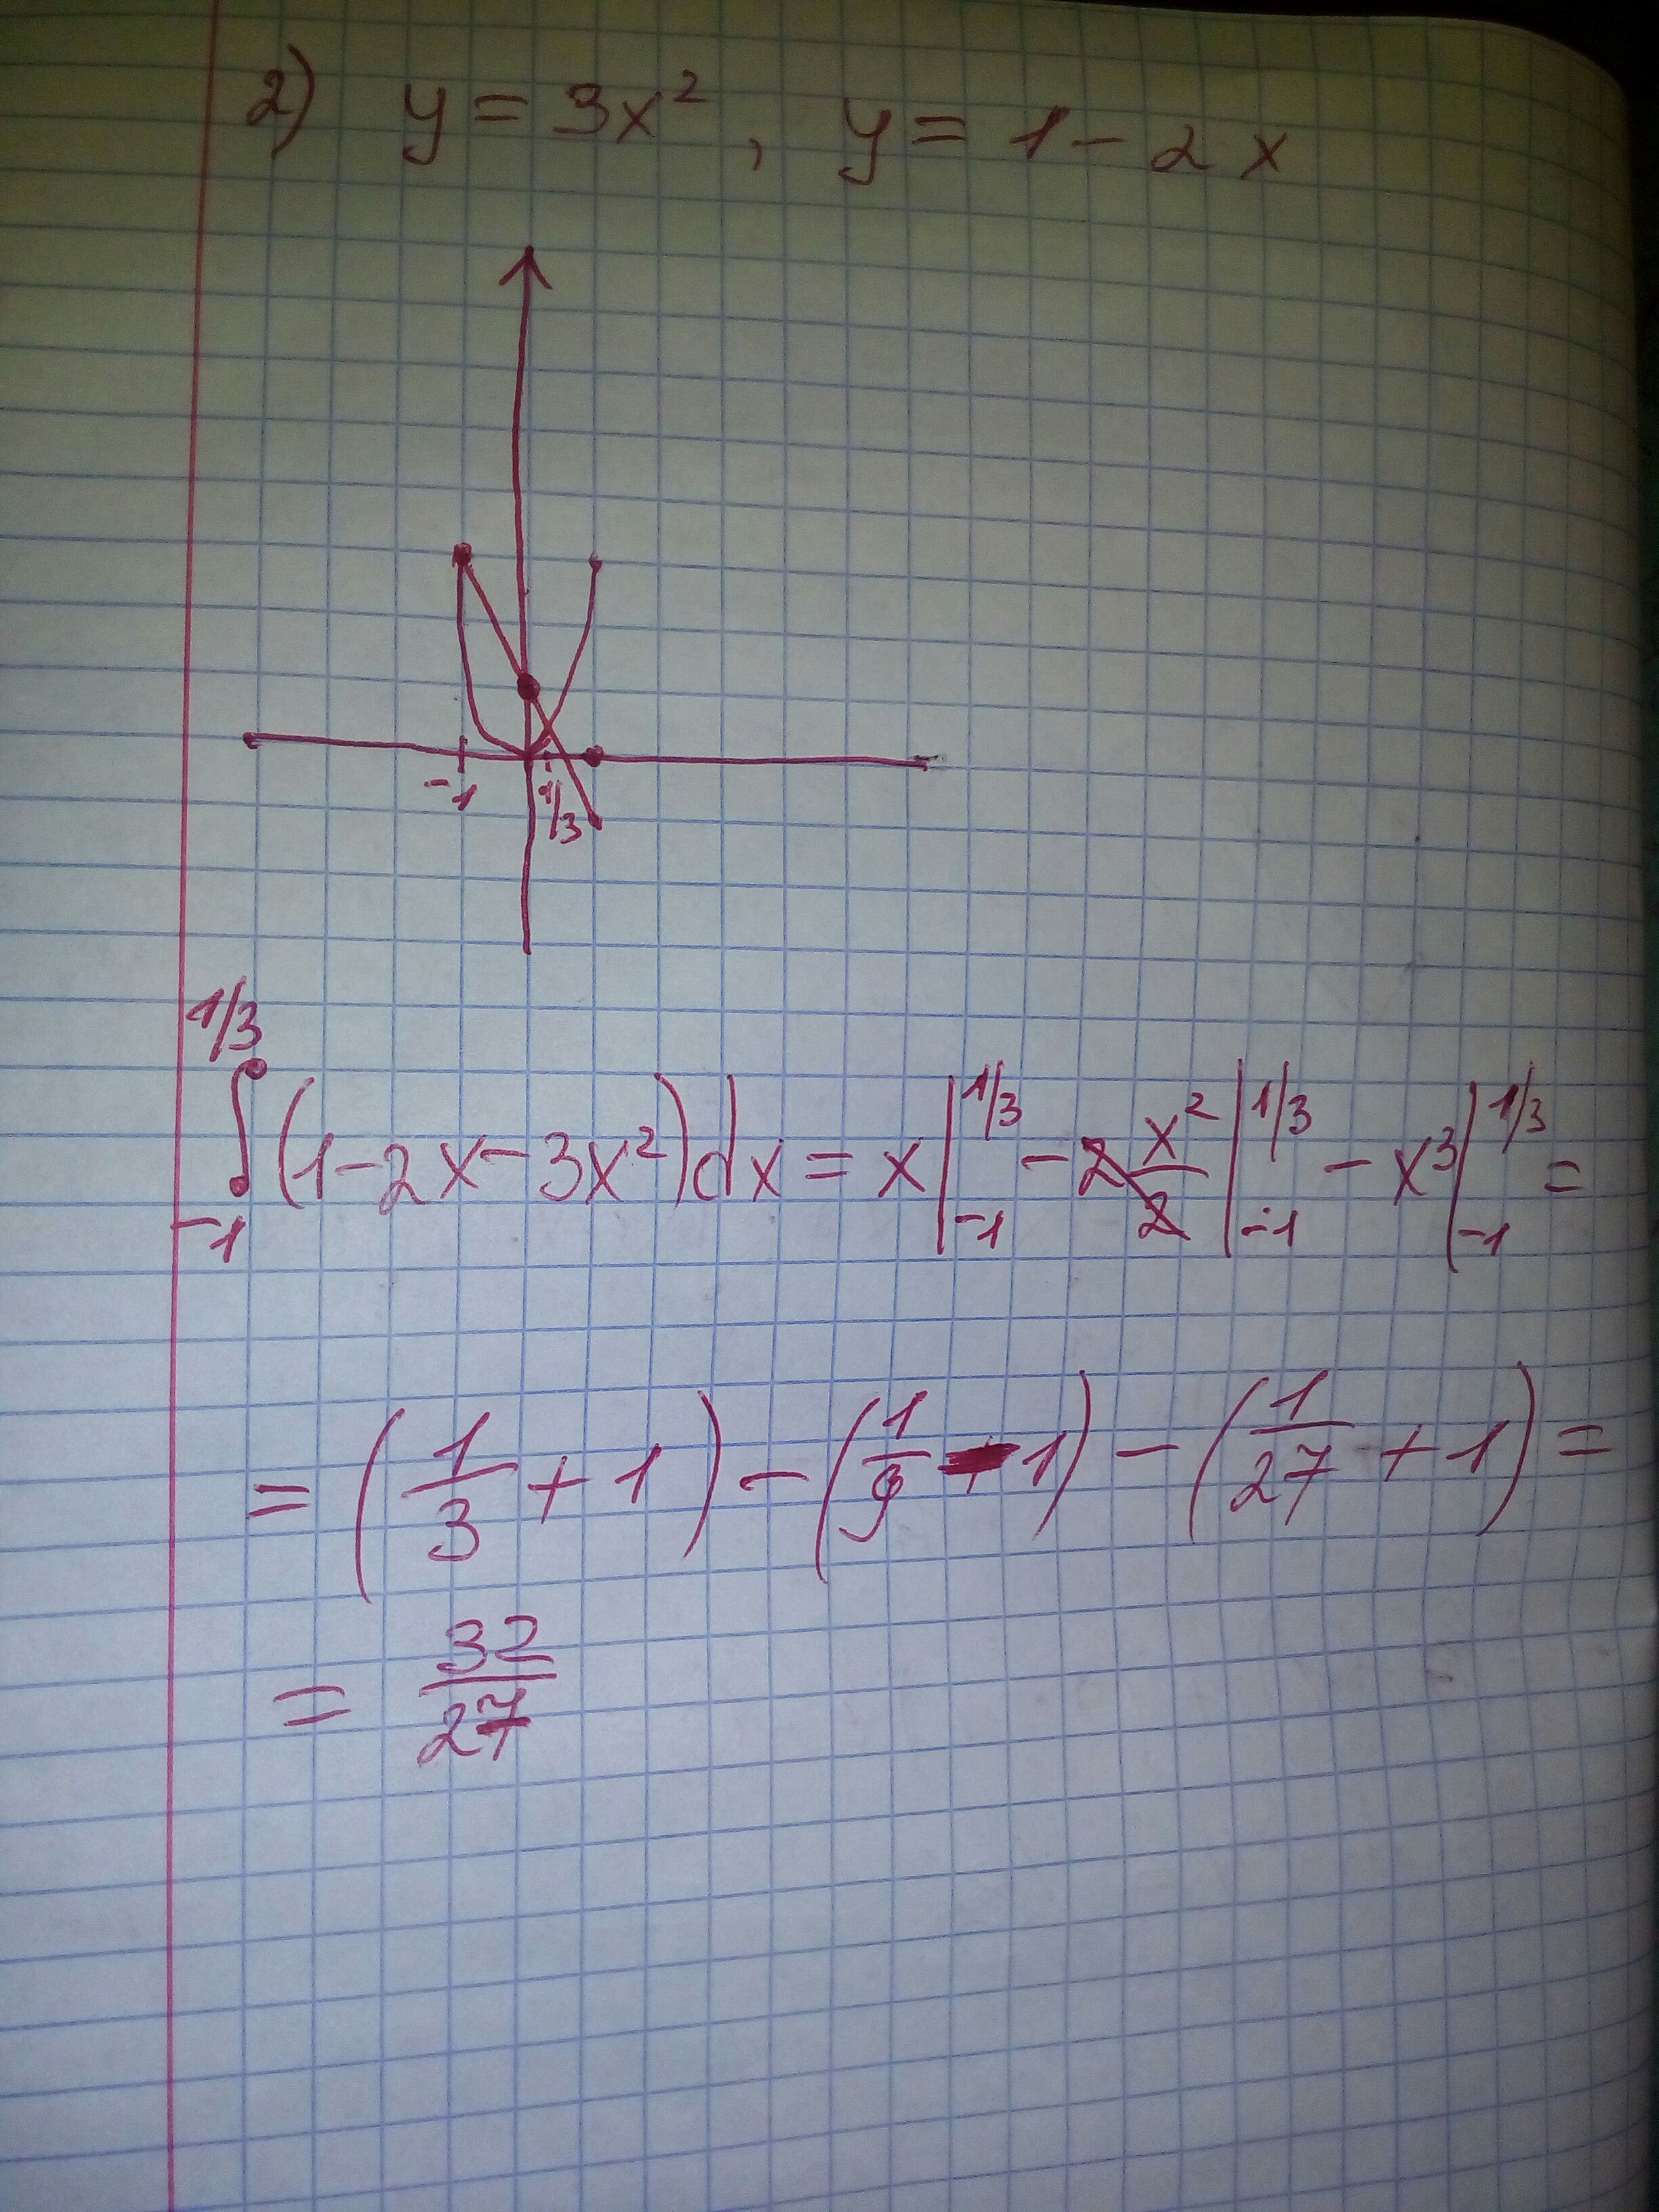 2) y = 3x², y = 1 - 2x
-1 1/3
∫_{-1}^{1/3} (1 - 2x - 3x²)dx = x|_{-1}^{1/3} - 2 x²/2 |_{-1}^{1/3} - x³|_{-1}^{1/3} =
= (1/3 + 1) - (1/9 - 1) - (1/27 + 1) =
= 32/27